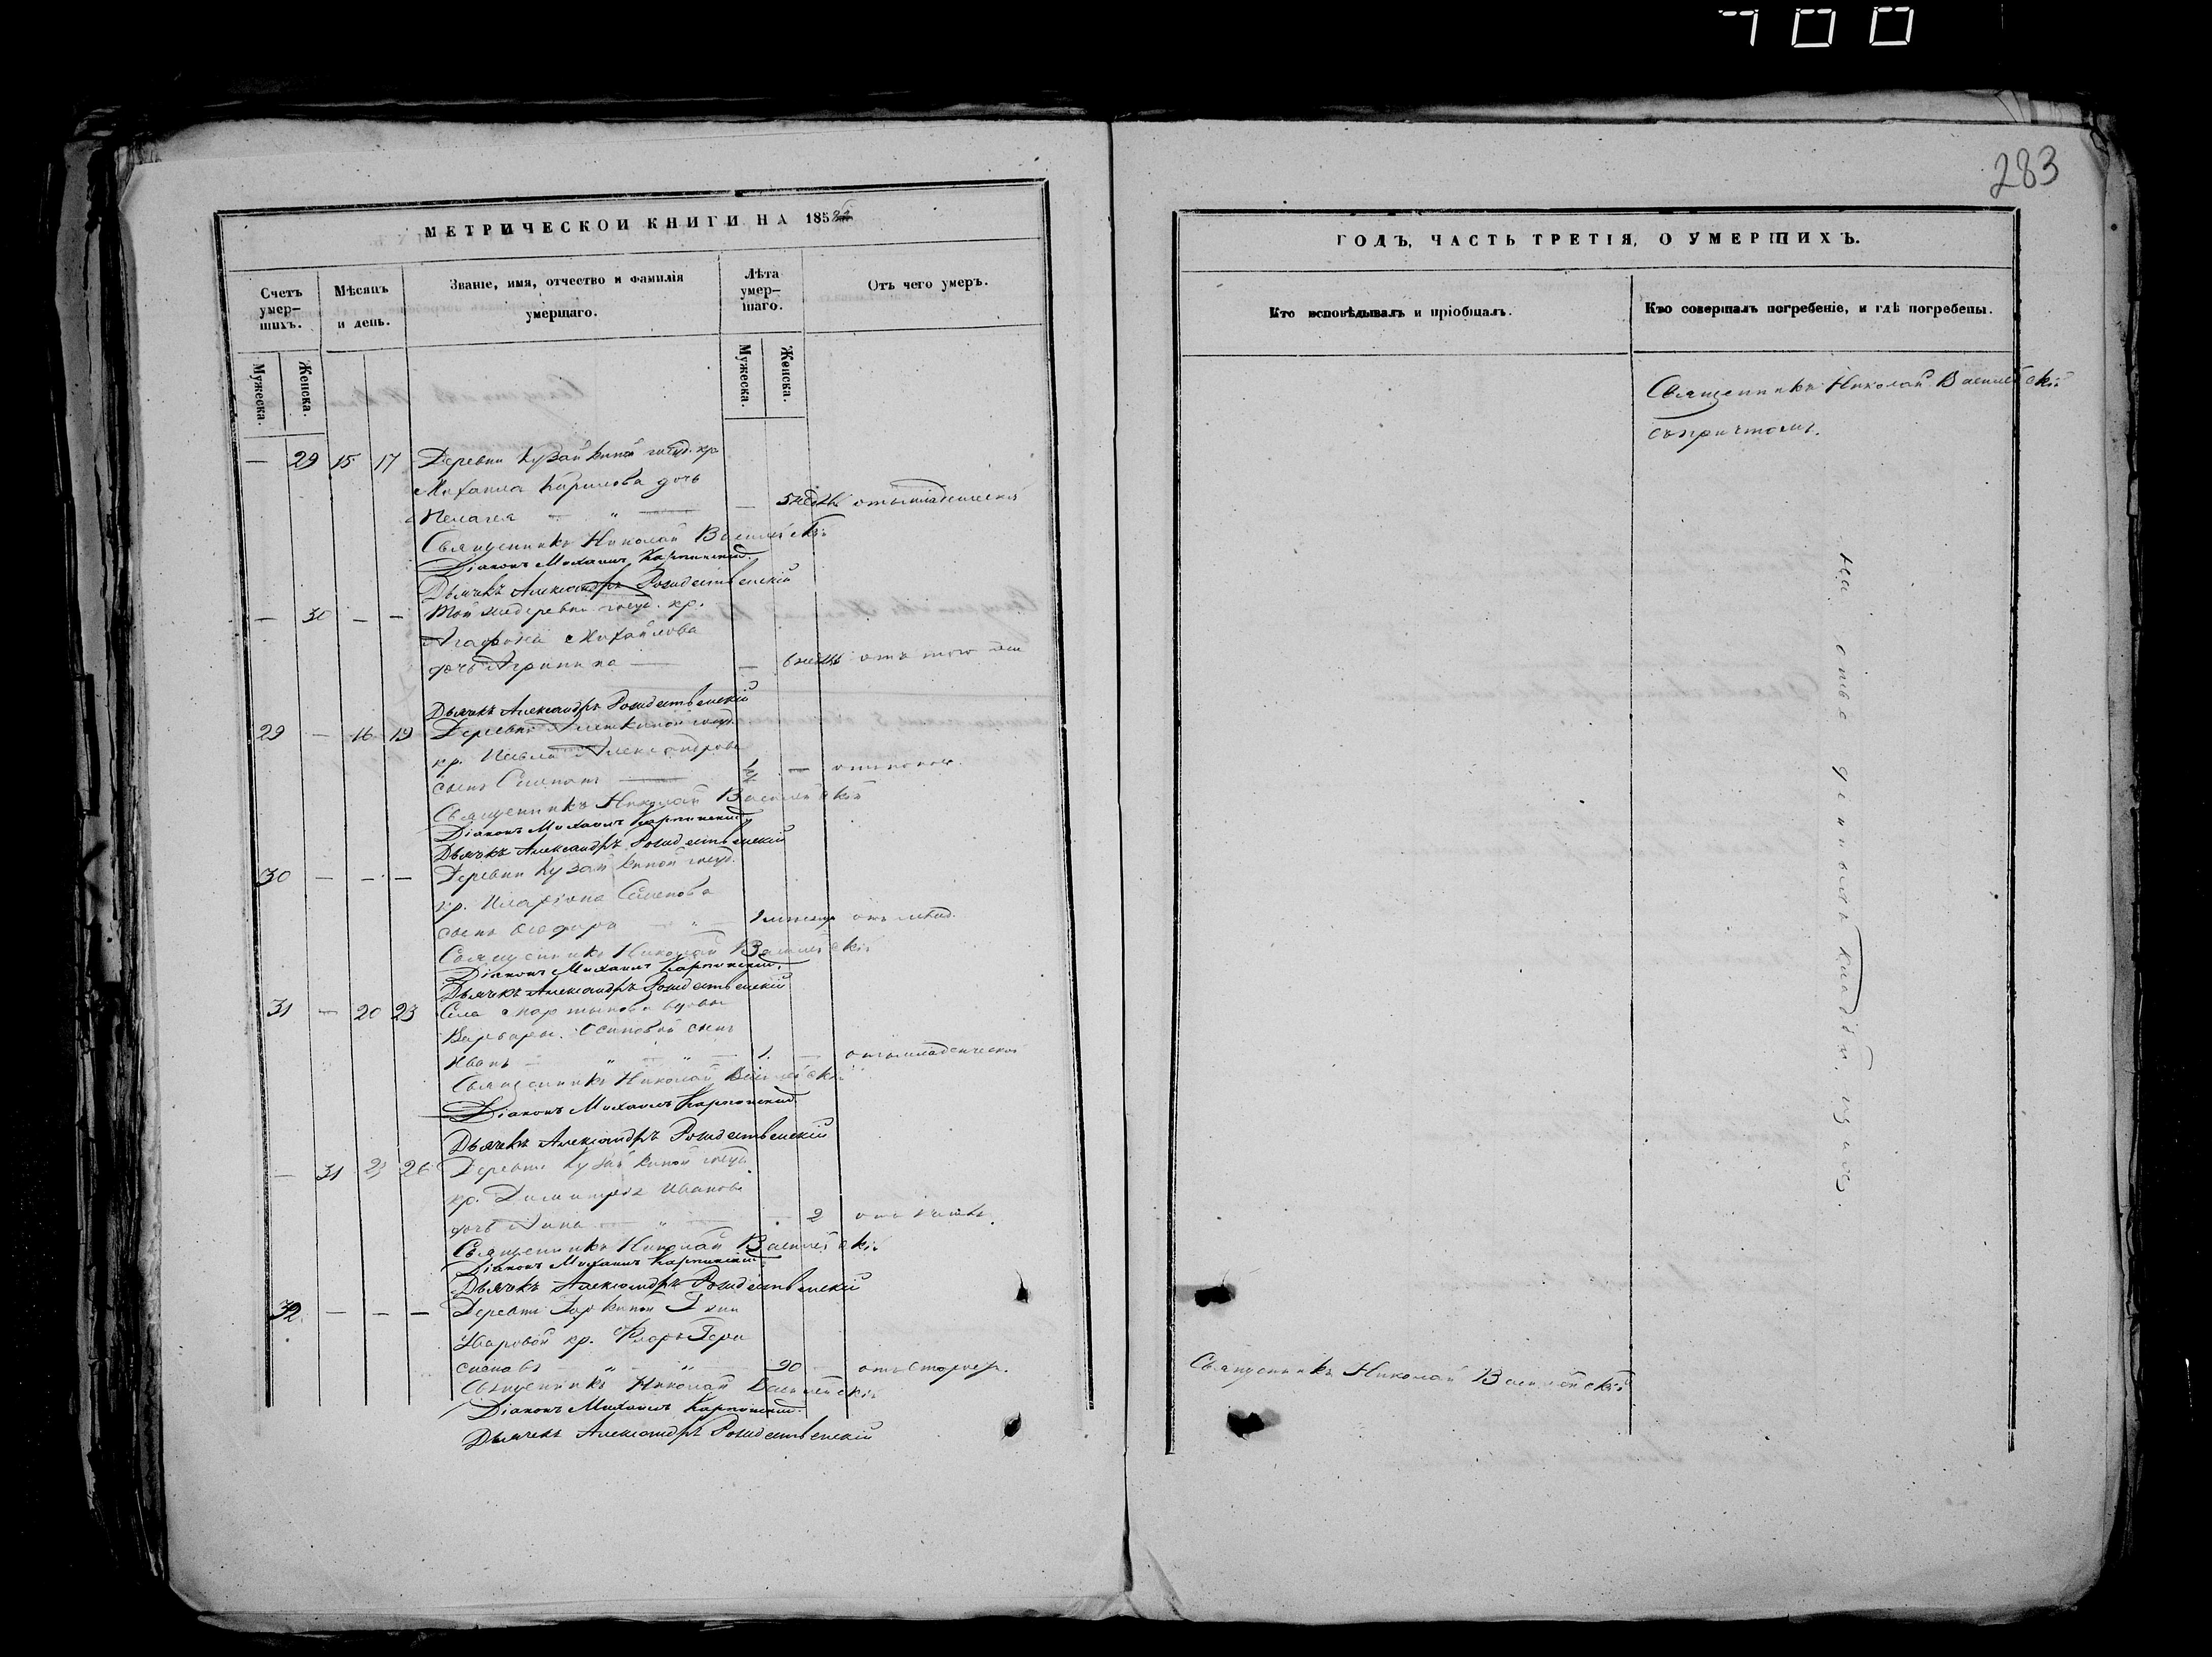 700
283
МЕТРИЧЕСКОЙ КНИГИ НА 185
Счетъ умер-шихъ.
Мѣсяцъ и день.
Званіе, имя, отчество и фамилія умершаго.
Лѣта умер-шаго.
Отъ чего умеръ.
Мужеска.
Женска.
Мужеска.
Женска.
— 29 15 17 Деревни Кузайкиной госуд. кр.
Михаила Кирилова дочь
Пелагея — " — — 5 недѣль отъ младенческой
Священникъ Николай Василевскій
Діаконъ Михаилъ Карпинскій.
Дьячекъ Александръ Рождественскій
— 30 — — Той же деревни госуд. кр.
Агафона Михайлова
дочь — — 6 недѣль отъ того же
Дьячекъ Александръ Рождественскій
29 — 16 19 Деревни Алешкиной госуд.
кр. Павла Александрова
сынъ Степанъ — —
Священникъ Николай Василевскій
Діаконъ Михаилъ Карпинскій
Дьячекъ Александръ Рождественскій
30 — — — Деревни Кузайкиной госуд.
кр. Иларіона Семенова
сынъ
Священникъ Николай Василевскій
Діаконъ Михаилъ Карпинскій.
Дьячекъ Александръ Рождественскій
31 — 20 23 Села вдовы
Варвары Осиповой сынъ
Иванъ — " — " — 1. — отъ младенческой
Священникъ Николай Василевскій
Діаконъ Михаилъ Карпинскій.
Дьячекъ Александръ Рождественскій
— 31 23 26 Деревни Кузайкиной госуд.
кр. Димитрія Иванова
дочь Анна — " — — 2
Священникъ Николай Василевскій
Діаконъ Михаилъ Карпинскій.
Дьячекъ Александръ Рождественскій
32. — — — Деревни
Уваровой кр.
" " 90 — отъ старости.
Священникъ Николай Василевскій
Діаконъ Михаилъ Карпинскій.
Дьячекъ Александръ Рождественскій
ГОДЪ, ЧАСТЬ ТРЕТІЯ, О УМЕРШИХЪ.
Кто исповѣдывалъ и пріобщалъ.
Кто совершалъ погребеніе, и гдѣ погребены.
Священникъ Николай Василевскій
съ причтомъ.
на кладби
Священникъ Николай Василевскій